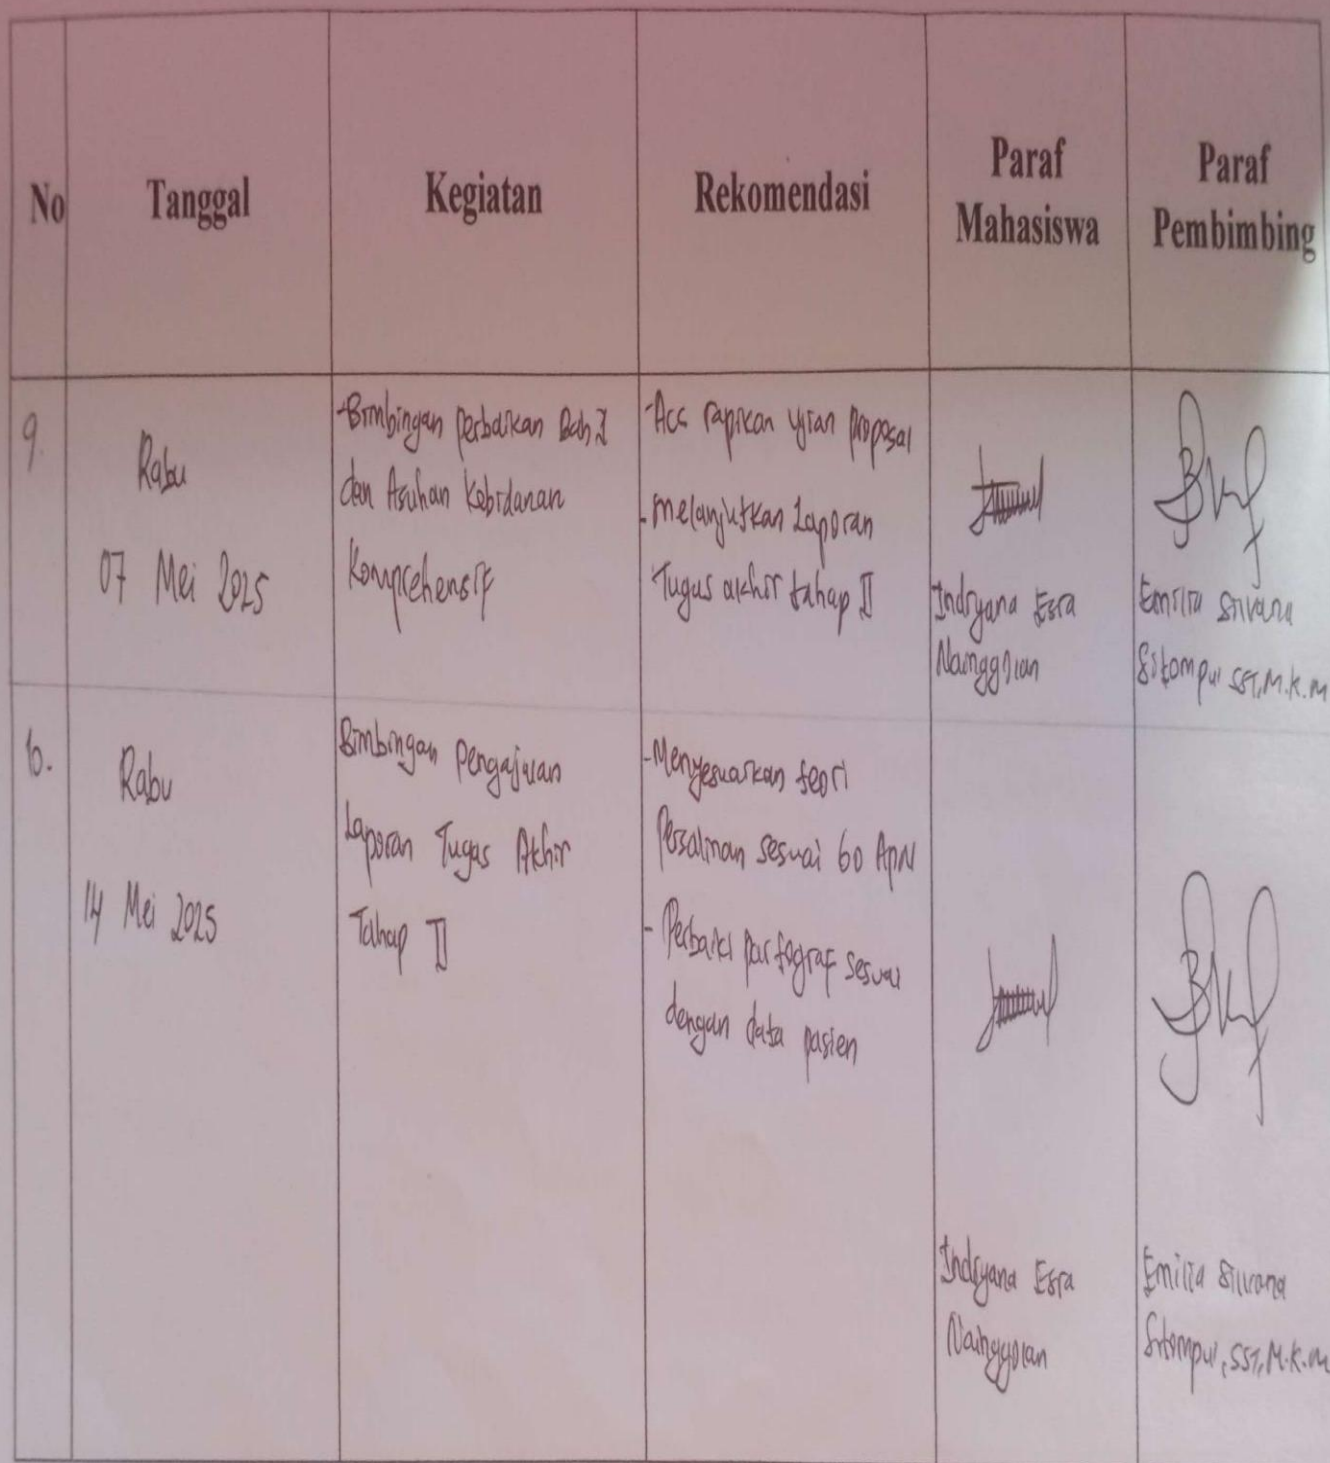 No
Tanggal
Kegiatan
Rekomendasi
Paraf
Mahasiswa
Paraf
Pembimbing
9.
Rabu
07 Mei 2025
-Bimbingan perbaikan Bab I
dan Asuhan Kebidanan
Komprehensif
-Acc rapikan ujian proposal
-melanjutkan Laporan
Tugas akhir tahap II
Indryana Esra
Nainggolan
Emilia Silvana
Sitompul SST, M.K.M
10.
Rabu
14 Mei 2025
Bimbingan Pengajuan
Laporan Tugas Akhir
Tahap II
-Menyesuaikan teori
Persalinan sesuai 60 APN
- Perbaiki partograf sesuai
dengan data pasien
Indryana Esra
Nainggolan
Emilia Silvana
Sitompul, SST, M.K.M